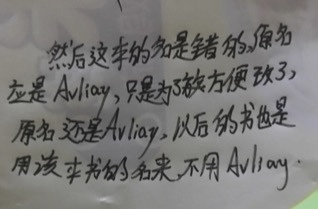 然后这本的名是错的,原名
应是Avliay,只是为了敲方便改了,
原名还是Avliay,以后的书也是
用该本书的名来,不用Avliay.